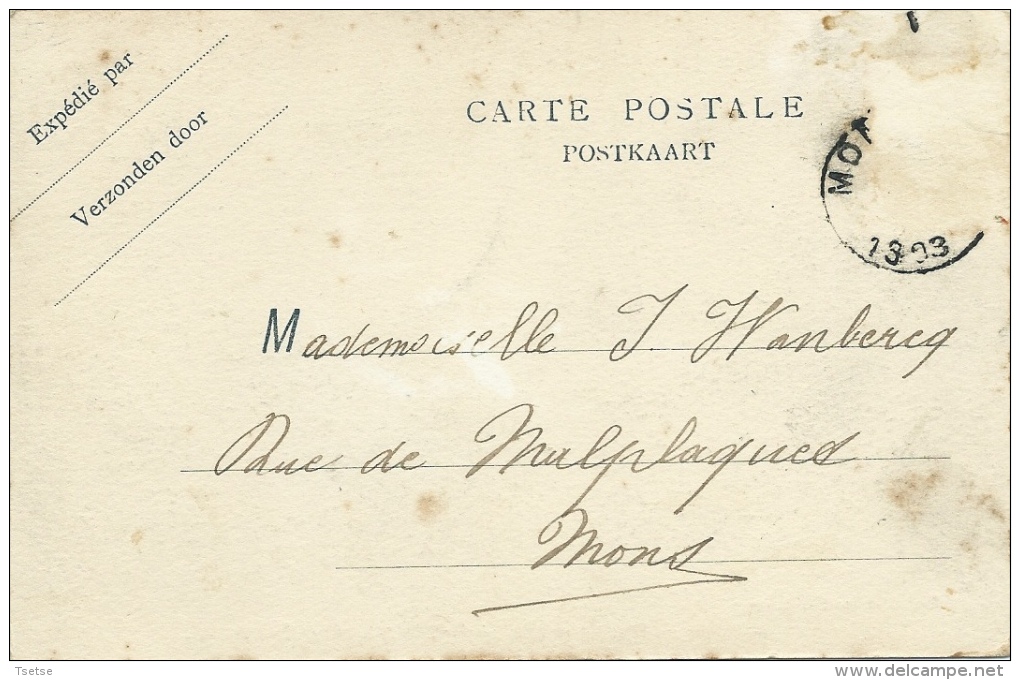 Expédié par
Verzonden door
CARTE POSTALE
POSTKAART
MO
Mademoiselle J. Wanbercq
Rue de Malplaquet
Mons
Tsetse
www.delcampe.net